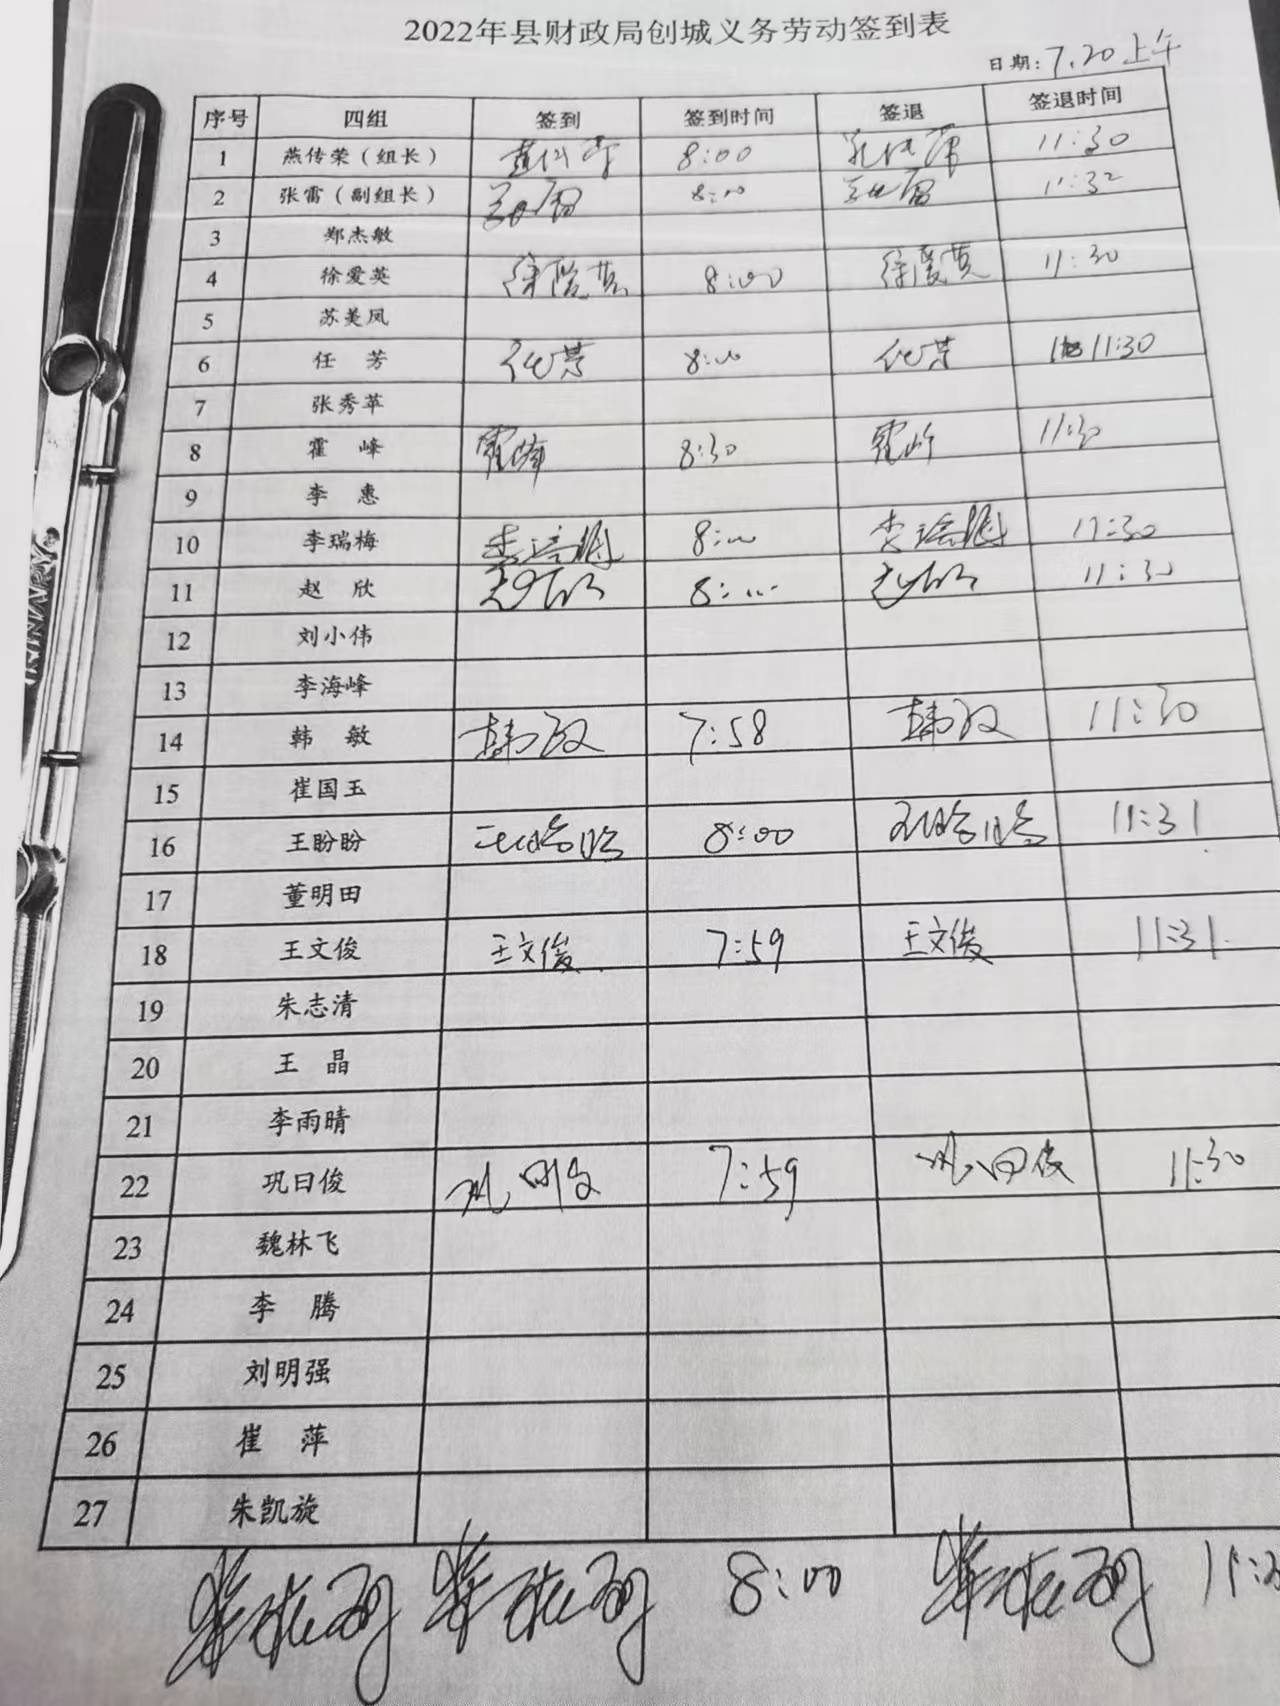 2022年县财政局创城义务劳动签到表
日期：7.20上午
序号 四组 签到 签到时间 签退 签退时间
1 燕传荣（组长） 燕传荣 8:00 燕传荣 11:30
2 张雷（副组长） 张雷 8:00 张雷 11:32
3 郑杰敏
4 徐爱英 徐爱英 8:00 徐爱英 11:30
5 苏美凤
6 任 芳 任芳 8:00 任芳 11:30
7 张秀苹
8 霍 峰 霍峰 8:30 霍峰 11:30
9 李 惠
10 李瑞梅 李瑞梅 8:00 李瑞梅 11:30
11 赵 欣 赵欣 8:00 赵欣 11:30
12 刘小伟
13 李海峰
14 韩 敏 韩敏 7:58 韩敏 11:30
15 崔国玉
16 王盼盼 王盼盼 8:00 王盼盼 11:31
17 董明田
18 王文俊 王文俊 7:59 王文俊 11:31
19 朱志清
20 王 晶
21 李雨晴
22 巩曰俊 巩曰俊 7:59 巩曰俊 11:30
23 魏林飞
24 李 腾
25 刘明强
26 崔 萍
27 朱凯旋
8:00